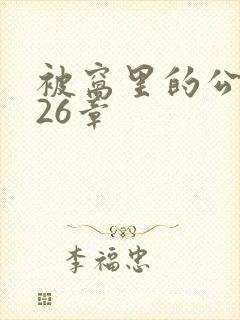 被窝里的公
26章
李福忠